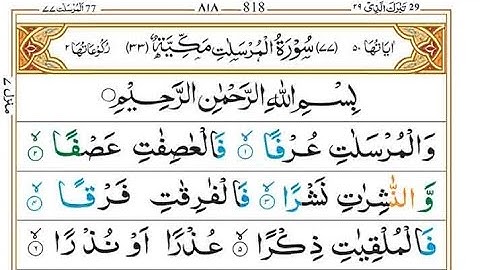 تبٰرك الذی ٢٩ 29 818 ٨١٨ 77 المرسلٰت ٧٧
اٰیاتہا ٥٠ (٧٧) سُوْرَةُ الْمُرْسَلٰتِ مَكِّيَّةٌ (٣٣) رکوعاتہا ٢
منزل ٧
بِسْمِ اللهِ الرَّحْمٰنِ الرَّحِيْمِ
وَالْمُرْسَلٰتِ عُرْفًا ١ فَالْعٰصِفٰتِ عَصْفًا ٢
وَّالنّٰشِرٰتِ نَشْرًا ٣ فَالْفٰرِقٰتِ فَرْقًا ٤
فَالْمُلْقِيٰتِ ذِكْرًا ٥ عُذْرًا اَوْ نُذْرًا ٦